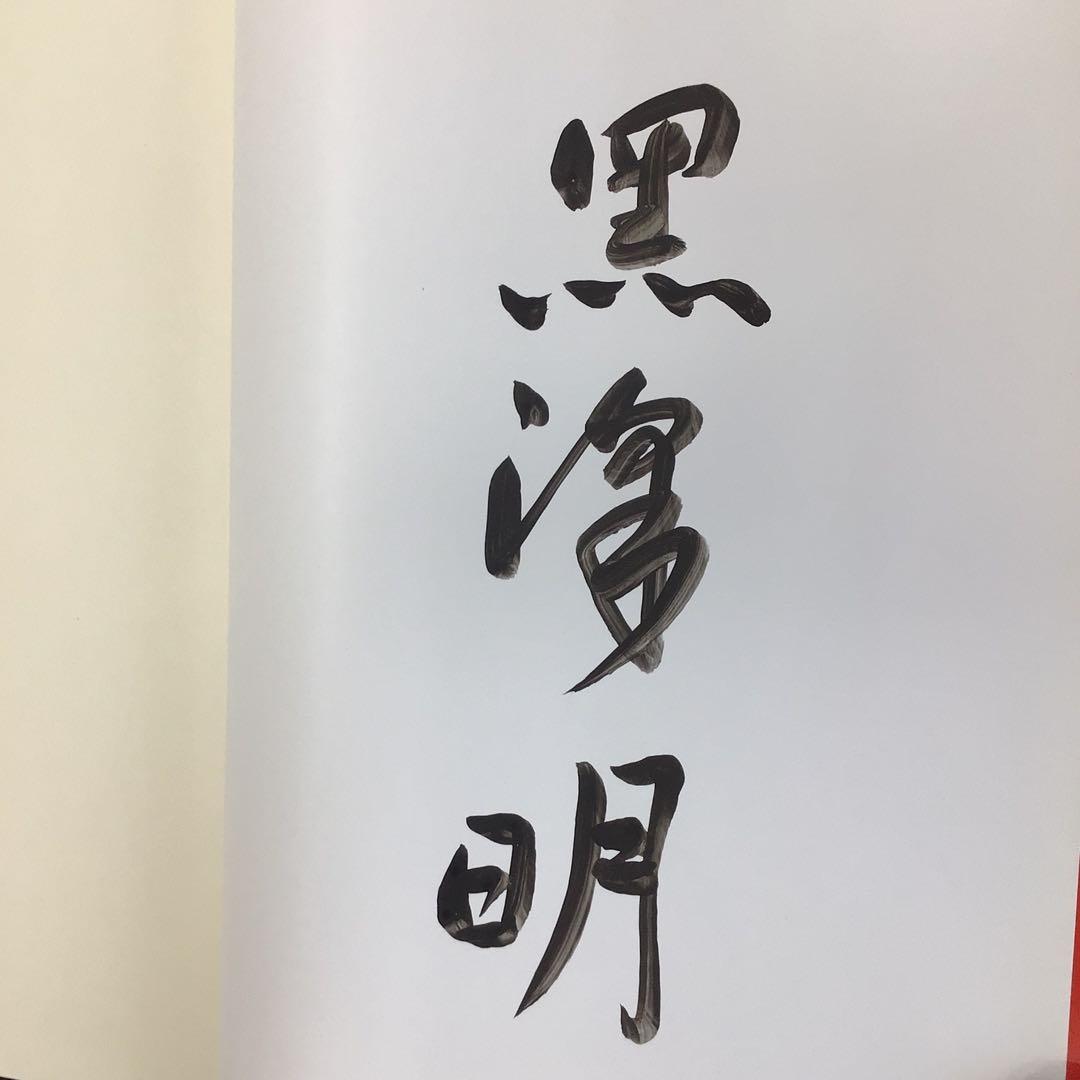 黒澤明